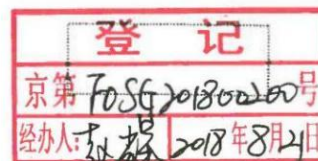 登记
京第F0SG201800200号
经办人:赵磊 2018年8月21日